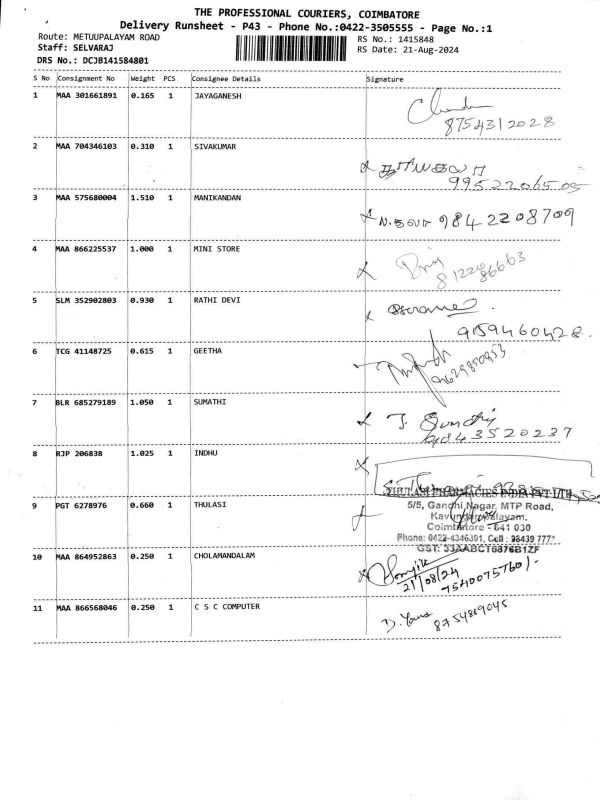 THE PROFESSIONAL COURIERS, COIMBATORE
Delivery Runsheet - P43 - Phone No.:0422-3505555 - Page No.:1
Route: METUUPALAYAM ROAD
Staff: SELVARAJ
DRS No.: DCJB141584801
RS No.: 1415848
RS Date: 21-Aug-2024
S No Consignment No Weight PCS Consignee Details Signature
1 MAA 301661891 0.165 1 JAYAGANESH
8754312028
2 MAA 704346103 0.310 1 SIVAKUMAR
3 MAA 575680004 1.510 1 MANIKANDAN
9842208709
4 MAA 866225537 1.000 1 MINI STORE
8122686663
5 SLM 352902803 0.930 1 RATHI DEVI
9159460428
6 TCG 41148725 0.615 1 GEETHA
9629850953
7 BLR 685279189 1.050 1 SUMATHI
9843520237
8 RJP 206838 1.025 1 INDHU
THULASI PHARMACIES INDIA PVT LTD
9 PGT 6278976 0.660 1 THULASI
5/5, Gandhi Nagar, MTP Road,
Kavundampalayam,
Coimbatore - 641 030
Phone: 0422-4346391, Cell : 98439 777
GST: 33AABCT6876B1ZF
10 MAA 864952863 0.250 1 CHOLAMANDALAM
21/08/24
7540075760/-
11 MAA 866568046 0.250 1 C S C COMPUTER
8754869045